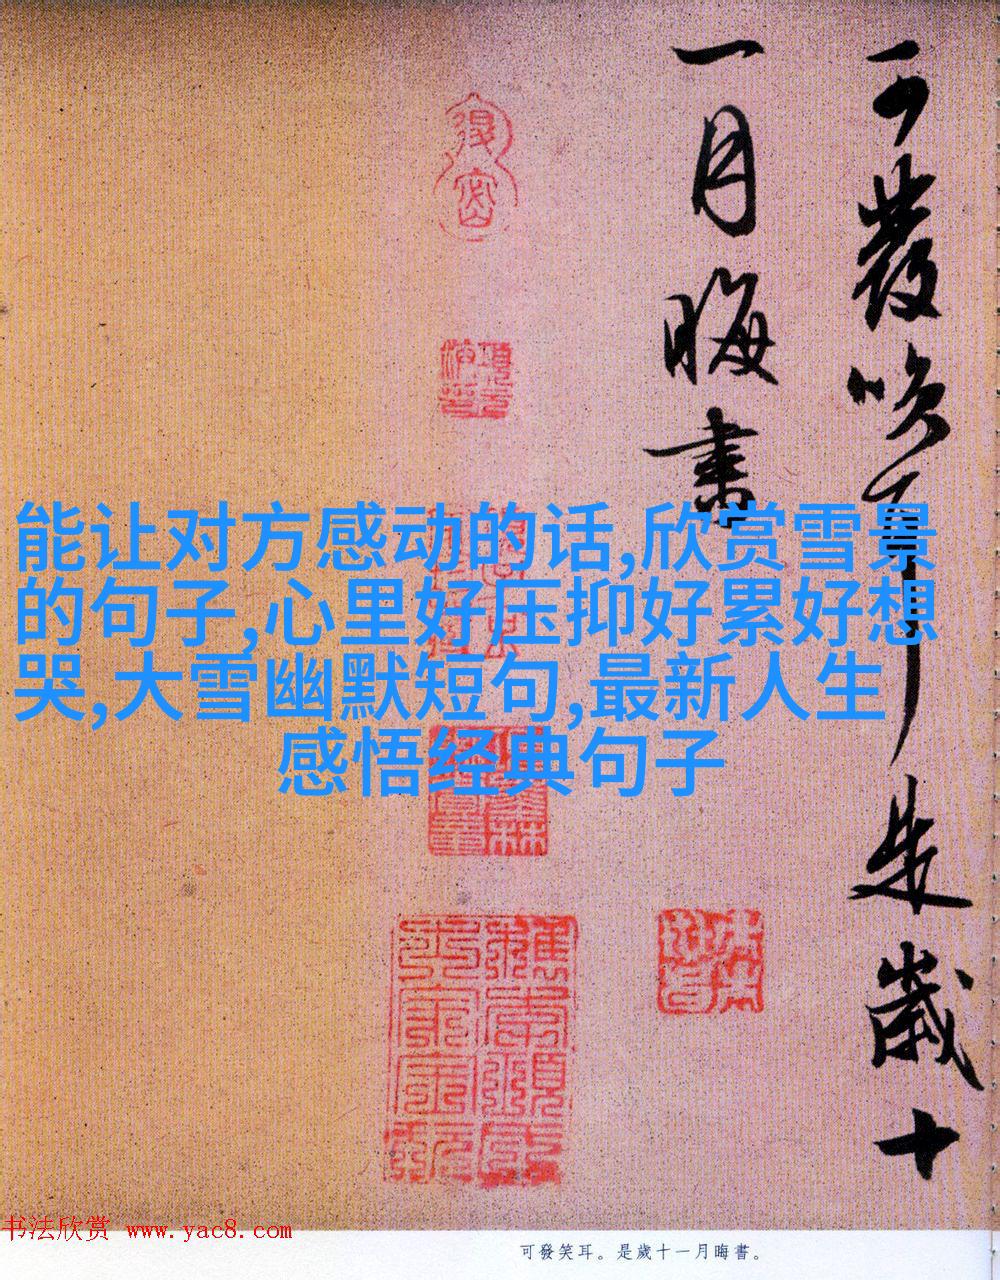 可發笑耳是歲十
一月晦書
能让对方感动的话,欣赏雪景
的句子,心里好压抑好累好想
哭,大雪幽默短句,最新人生
感悟经典句子
书法欣赏 www.yac8.com
可發笑耳。是歲十一月晦書。